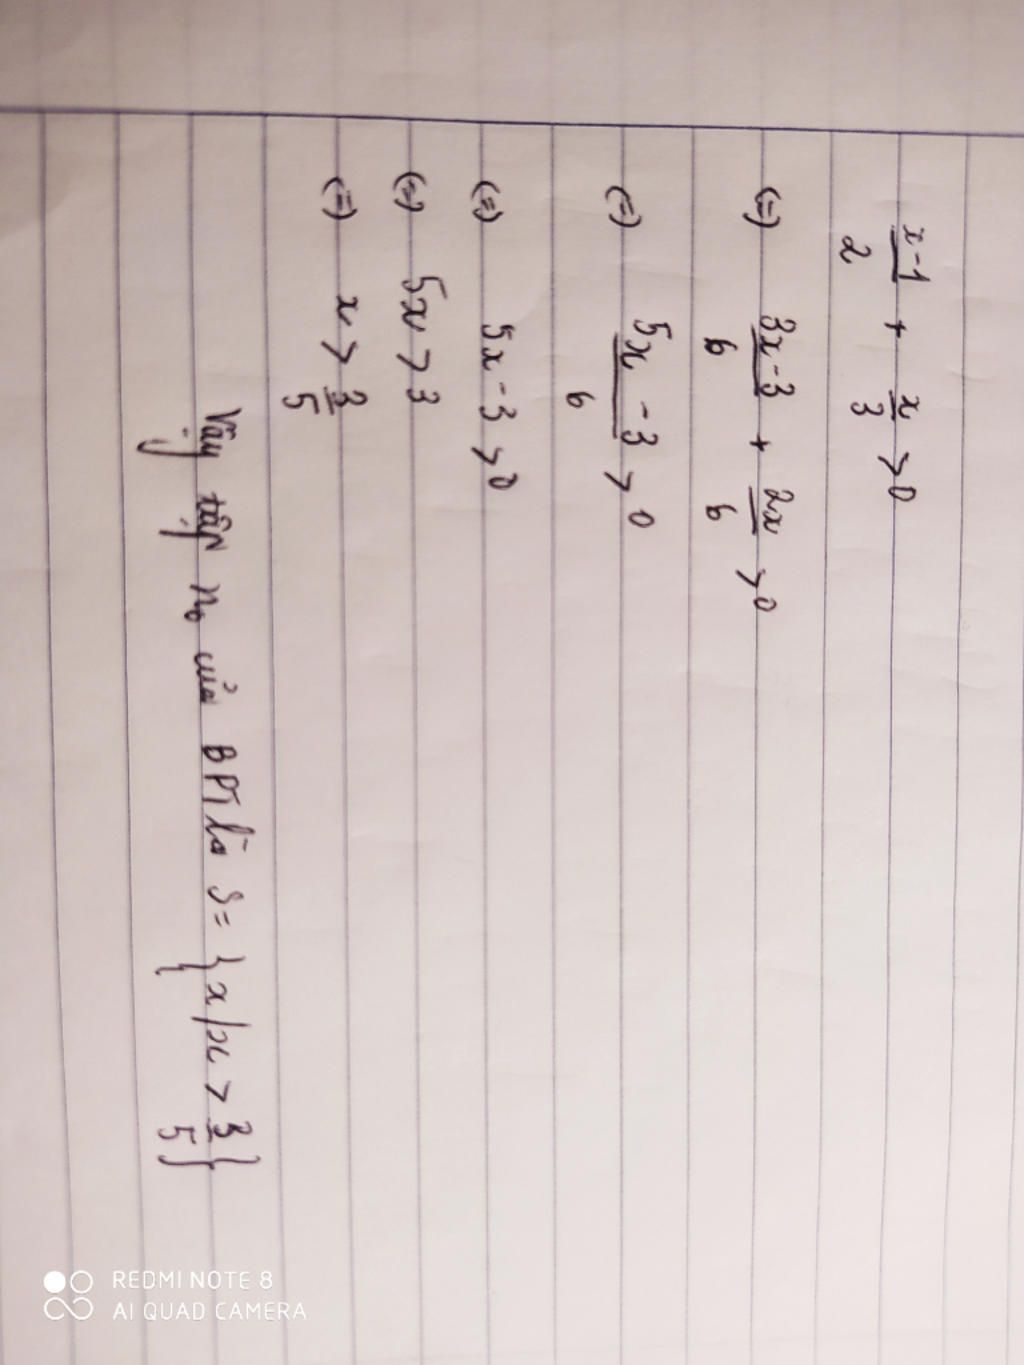 x-1/2 + x/3 > 0
(=) 3x-3/6 + 2x/6 > 0
(=) 5x-3/6 > 0
(=) 5x-3 > 0
(=) 5x > 3
(=) x > 3/5
Vậy tập no của BPT là S = {x/x > 3/5}
REDMI NOTE 8
AI QUAD CAMERA